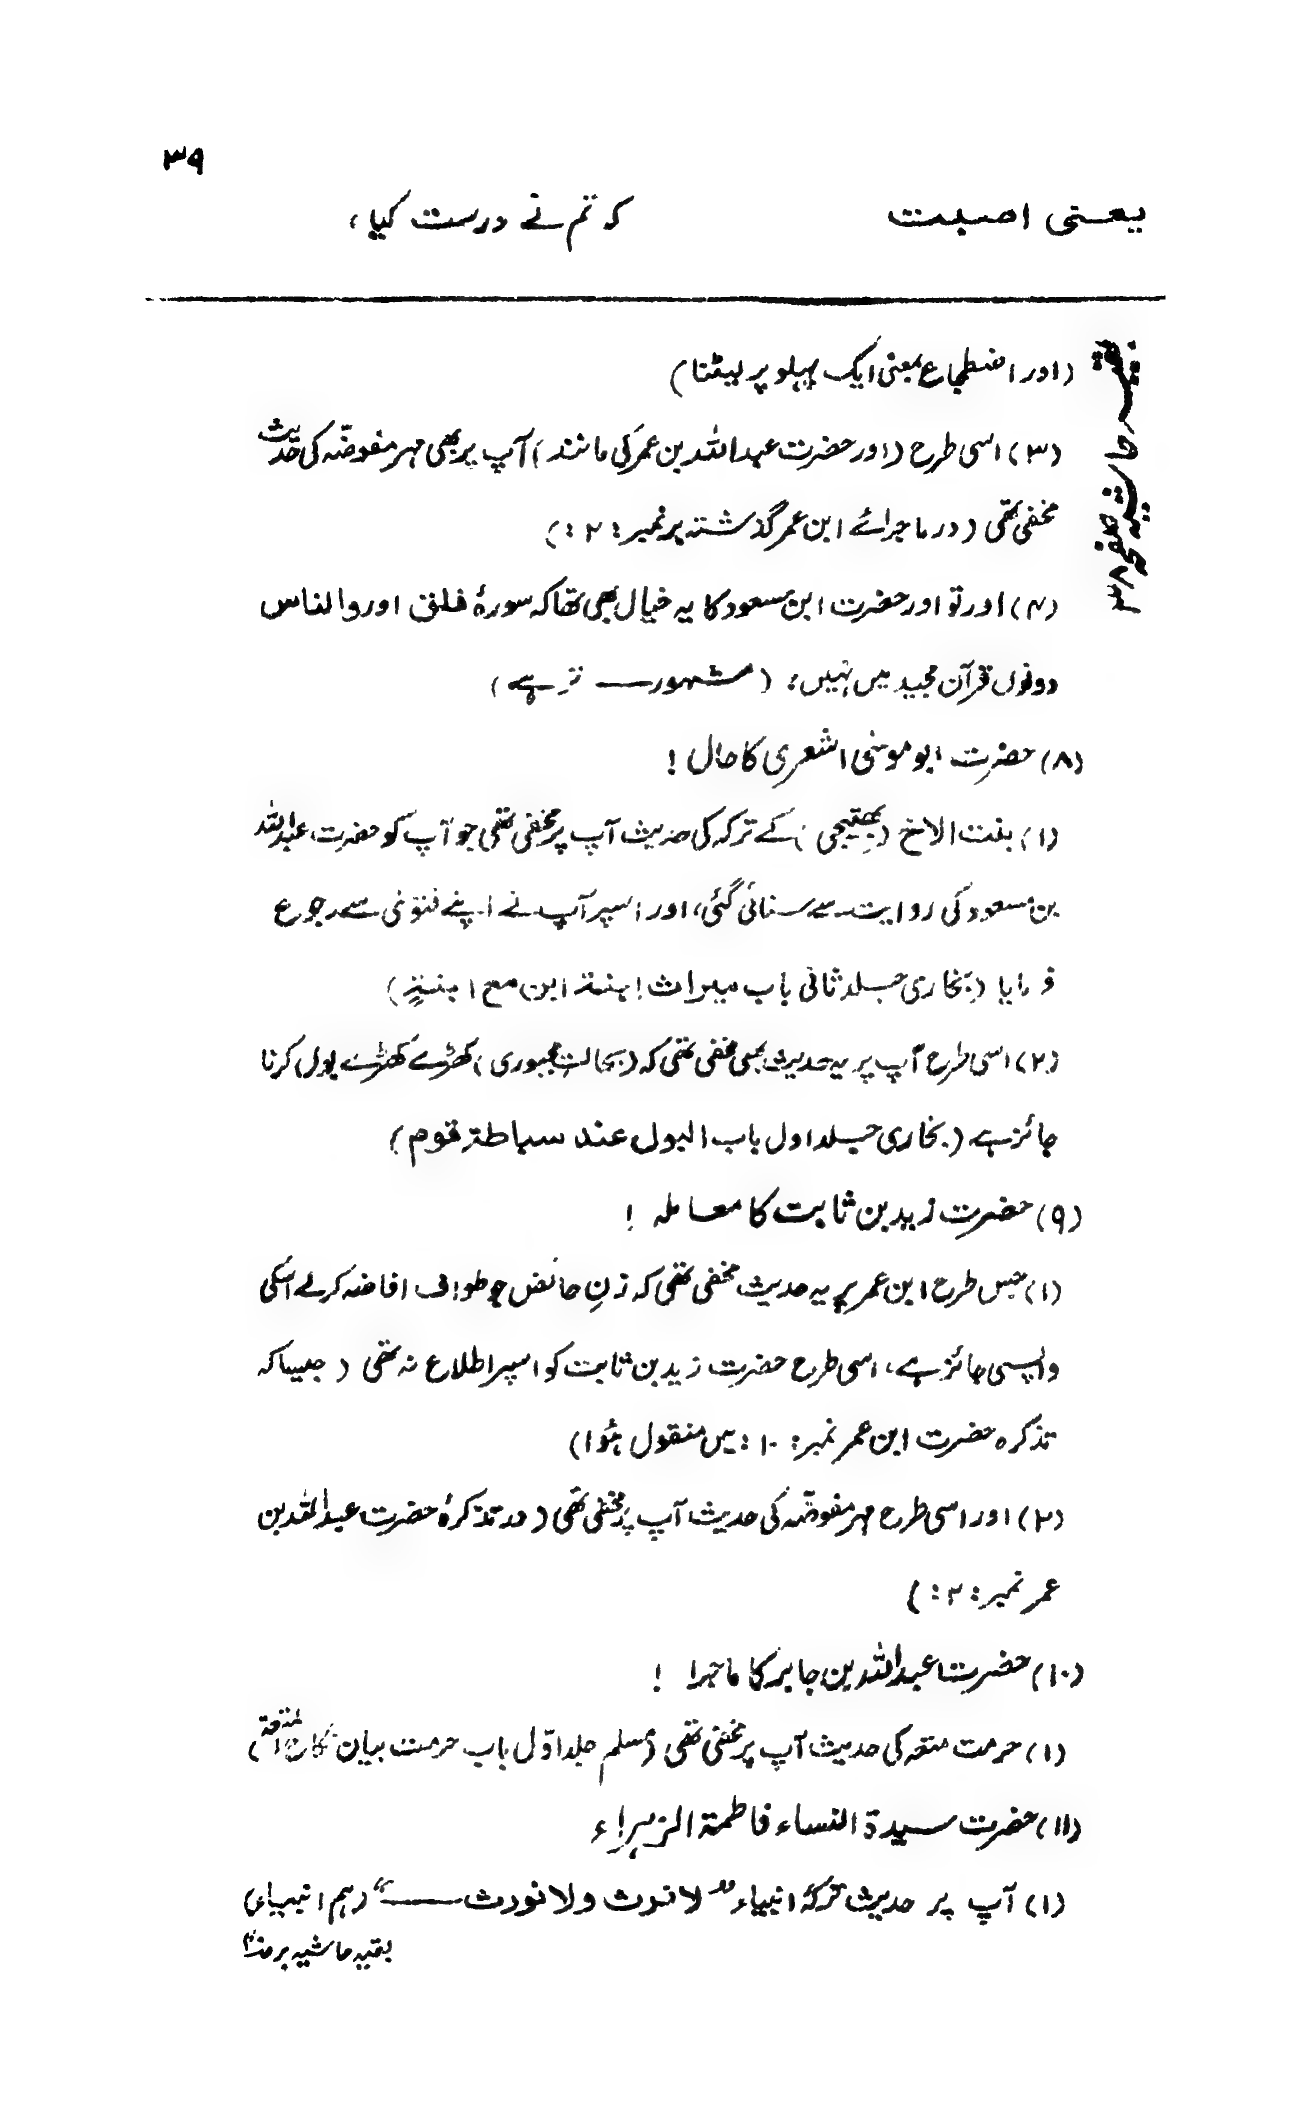 ۳۹
یعنی اصبت کہ تم نے درست کیا،
بقیہ حاشیہ صفحہ ۳۸
(اور اضطجاع بمعنی ایک پہلو پر لیٹنا)
(۳) اسی طرح (اور حضرت عبداللہ بن عمر کی مانند) آپ پر بھی مہر مفوضّہ کی حدیث
مخفی تھی (در ماجرائے ابن عمر گذشتہ پر نمبر: ۲:)
(۴) اور تو اور حضرت ابن مسعود کا یہ خیال بھی تھا کہ سورۂ فلق اور والناس
دونوں قرآن مجید میں نہیں، (مشہور تر ہے)
(۸) حضرت ابو موسٰی اشعری کا حال !
(۱) بنت الاخ (بھتیجی) کے ترکہ کی حدیث آپ پر مخفی تھی جو آپ کو حضرت عبداللہ
بن مسعود کی روایت سے سنائی گئی، اور اسپر آپ نے اپنے فتوٰی سے رجوع
فرمایا (بخاری جلد ثانی باب میراث ابنۃ ابن مع ابنتہٖ)
(۲) اسی طرح آپ پر یہ حدیث بھی مخفی تھی کہ (بحالت مجبوری) کھڑے کھڑے بول کرنا
جائز ہے (بخاری جلد اول باب البول عند سباطۃ قوم)
(۹) حضرت زید بن ثابت کا معاملہ !
(۱) جس طرح ابن عمر پر یہ حدیث مخفی تھی کہ زنِ حائض جو طواف افاضہ کرلے اسکی
واپسی جائز ہے، اسی طرح حضرت زید بن ثابت کو اسپر اطلاع نہ تھی (جیسا کہ
تذکرہ حضرت ابن عمر نمبر: ۱۰: میں منقول ہُوا)
(۲) اور اسی طرح مہر مفوضّہ کی حدیث آپ پر مخفی تھی (در تذکرۂ حضرت عبداللہ بن
عمر نمبر: ۲:)
(۱۰) حضرت عبداللہ بن جابر کا ماجرا !
(۱) حرمت متعہ کی حدیث آپ پر مخفی تھی (مسلم جلد اوّل باب حرمت بیان نکاح المتعۃ)
(۱۱) حضرت سیدۃ النساء فاطمۃ الزہراء
(۱) آپ پر حدیث ترکۂ انبیاء “لا نرث ولا نورث ــــ” (ہم انبیاء)
بقیہ حاشیہ بر